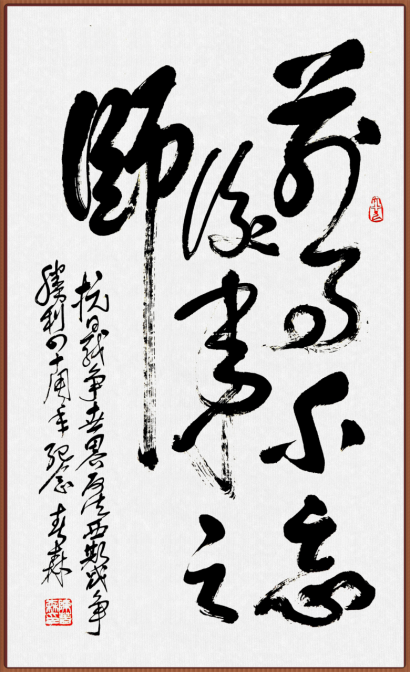 前事不忘
後事之
師
抗日战争世界反法西斯战争
勝利四十周年纪念 春森